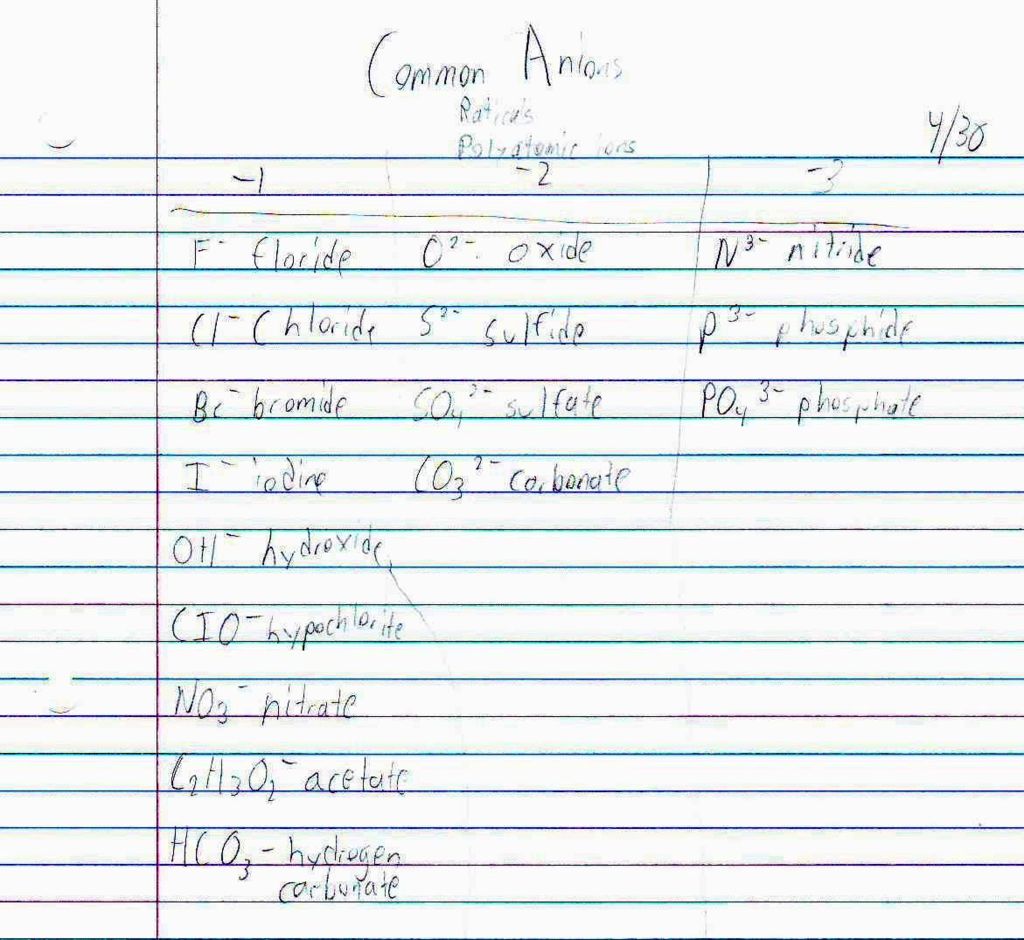 Common Anions
Raticals
Polyatomic ions
4/30
-1 -2 -3
F⁻ floride O²⁻ oxide N³⁻ nitride
Cl⁻ Chloride S²⁻ sulfide P³⁻ phosphide
Br⁻ bromide SO₄²⁻ sulfate PO₄³⁻ phosphate
I⁻ iodine CO₃²⁻ carbonate
OH⁻ hydroxide
ClO⁻ hypochlorite
NO₃⁻ nitrate
C₂H₃O₂⁻ acetate
HCO₃⁻ hydrogen
carbonate